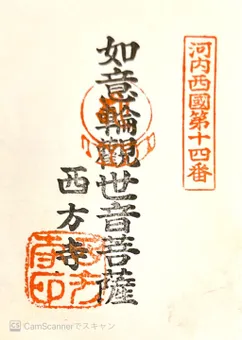 河内西國第十四番
如意輪觀世音菩薩
西方寺
CamScannerでスキャン